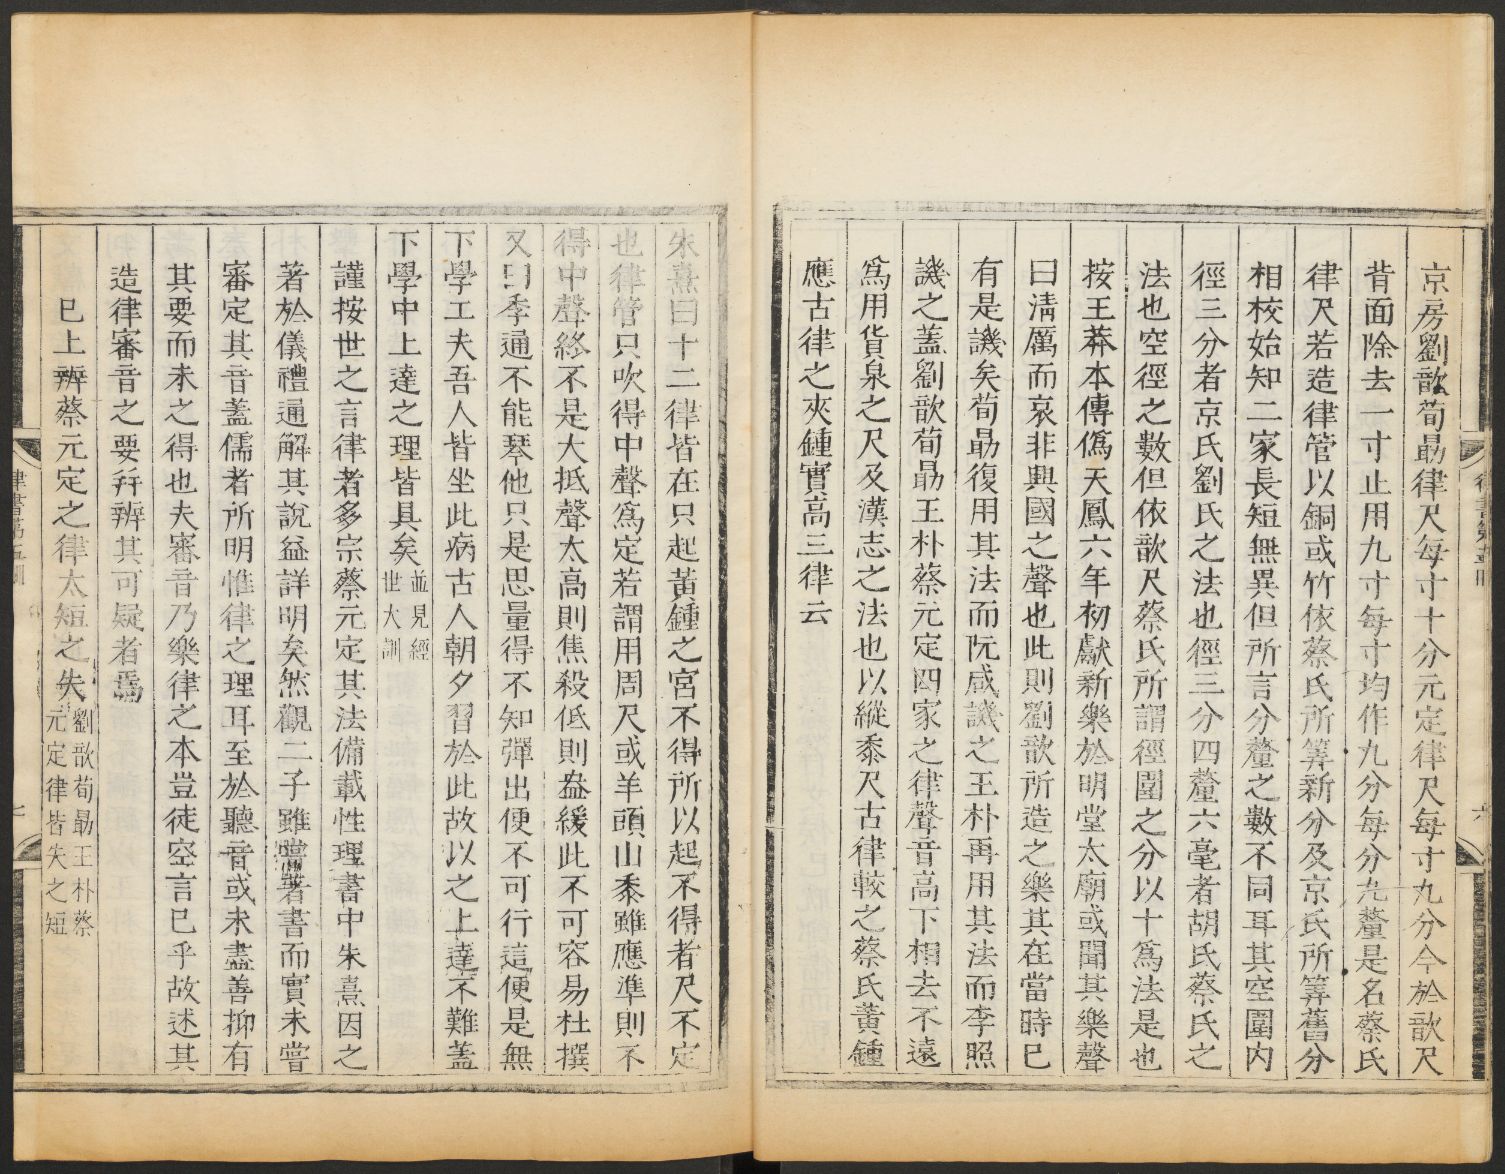 京房劉歆荀勗律尺每寸十分元定律尺每寸九分今於歆尺
背面除去一寸止用九寸每寸均作九分每分九釐是名蔡氏
律尺若造律管以銅或竹依蔡氏所筭新分及京氏所筭舊分
相校始知二家長短無異但所言分釐之數不同耳其空圍内
徑三分者京氏劉氏之法也徑三分四釐六毫者胡氏蔡氏之
法也空徑之數但依歆尺蔡氏所謂徑圍之分以十爲法是也
按王莽本傳僞天鳳六年初獻新樂於明堂太廟或聞其樂聲
曰淸厲而哀非興國之聲也此則劉歆所造之樂其在當時巳
有是譏矣荀勗復用其法而阮咸譏之王朴再用其法而李照
譏之蓋劉歆荀勗王朴蔡元定四家之律聲音高下相去不遠
爲用貨泉之尺及漢志之法也以縱黍尺古律較之蔡氏黃鍾
應古律之夾鍾實高三律云
朱熹曰十二律皆在只起黃鍾之宮不得所以起不得者尺不定
也律管只吹得中聲爲定若謂用周尺或羊頭山黍雖應準則不
得中聲終不是大抵聲太高則焦殺低則盎緩此不可容易杜撰
又曰季通不能琴他只是思量得不知彈出便不可行這便是無
下學工夫吾人皆坐此病古人朝夕習於此故以之上達不難蓋
下學中上達之理皆具矣並見經世大訓
謹按世之言律者多宗蔡元定其法備載性理書中朱熹因之
著於儀禮通解其說益詳明矣然觀二子雖嘗著書而實未嘗
審定其音蓋儒者所明惟律之理耳至於聽音或未盡善抑有
其要而未之得也夫審音乃樂律之本豈徒空言巳乎故述其
造律審音之要幷辨其可疑者焉
巳上辨蔡元定之律太短之失劉歆荀勗王朴蔡元定律皆失之短